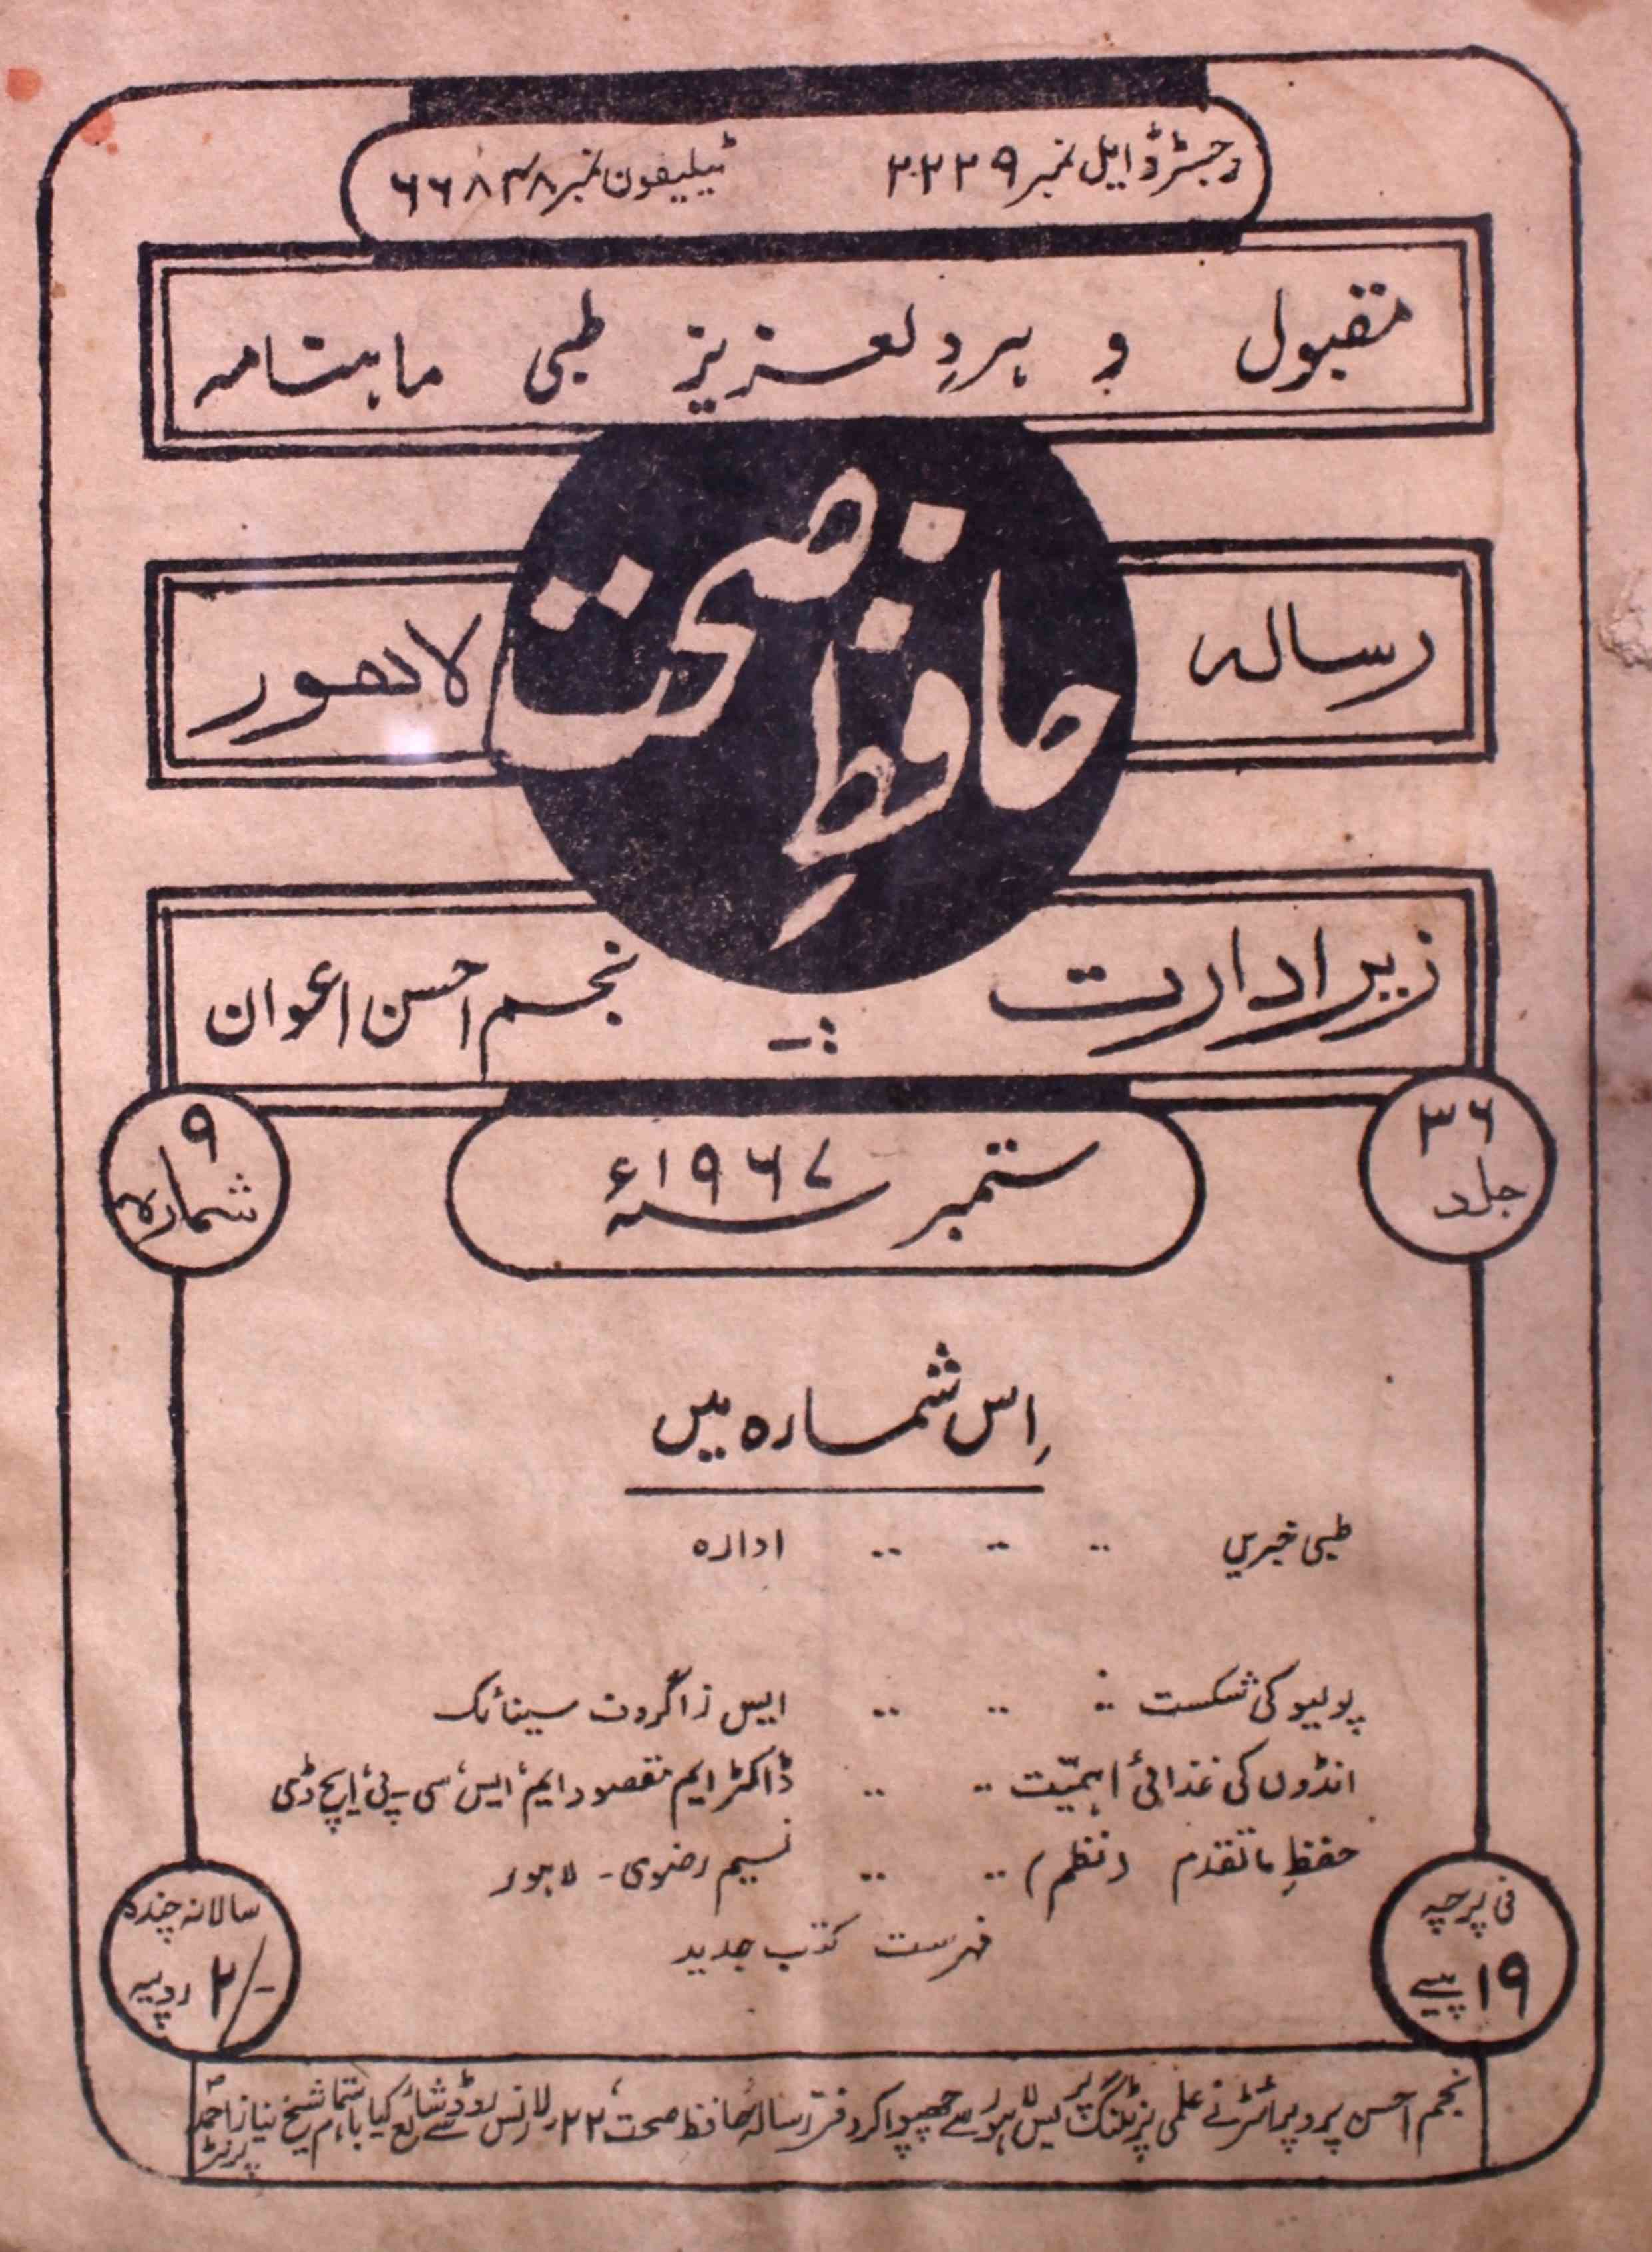 رجسٹرڈ ایل نمبر ۳۳۳۹ ٹیلیفون نمبر ۶۶۸۳۸
مقبول و ہردلعزیز طبی ماہنامہ
رسالہ حافظِ صحت لاھور
زیر ادارت :- نجم احسن اعوان
۳۶ جلد
ستمبر سنہ ۱۹۶۷ء
۹ شمارہ
اِس شمارہ میں
طبی خبریں .. .. .. .. ادارہ
پولیو کی شکست .. .. .. ایلس زاگروت سیتانک
انڈوں کی غذائی اہمیّت .. .. ڈاکٹر ایم مقصود ایم، ایس، سی۔پی، ایچ ڈی
حفظِ ماتقدم (نظم) .. .. نسیم رضوی - لاہور
فہرست کتب جدید
فی پرچہ
۱۹ پیسے
سالانہ چندہ
۲/- روپیہ
نجم احسن پروپرائٹر نے علمی پرنٹنگ پریس لاہور سے چھپوا کر دفتر رسالہ حافظ صحت، ۲۲ لارنس روڈ سے شائع کیا باہتمام شیخ نیاز احمد پرنٹر